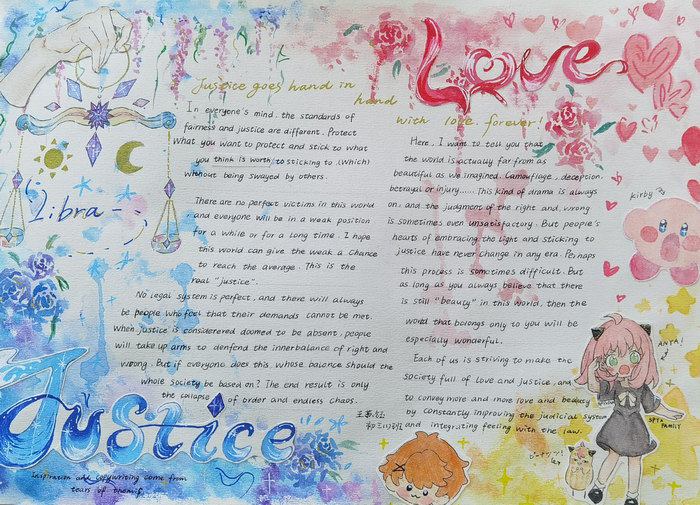 Love
Justice goes hand in
hand
with love, forever!
In everyone's mind, the standards of
fairness and justice are different. Protect
What you want to protect and stick to what
you think is worth to sticking to (which)
without being swayed by others.
There are no perfect victims in this world
and everyone will be in a weak position
for a while or for a long time. I hope
this world can give the weak a chance
to reach the average. This is the
real "justice".
No legal system is perfect, and there will always
be people who feel that their demands cannot be met.
When justice is considerered doomed to be absent, people
will take up arms to denfend the innerbalance of right and
wrong. But if everyone does this, whose balance should the
whole society be based on? The end result is only
the collapse of order and endless chaos.
Libra
Justice
Inspiration and copywriting come from
tears of themif
Here, I want to tell you that
the world is actually far from as
beautiful as we imagined. Camouflage, deception,
betrayal or injury...... This kind of drama is always
on, and the judgment of the right and wrong
is sometimes even unsatisfactory. But people's
hearts of embracing the light and sticking to
justice have never change in any era. Perhaps
this process is sometimes difficult. But
as long as you always believe that there
is still "beauty" in this world, then the
world that belongs only to you will be
especially wonderful.
Each of us is striving to make the
society full of love and justice, and
to convey more and more love and beauty
by constantly improving the judicial system
and integrating feeling with the law.
Kirby
ANYA!
SPY
FAMILY